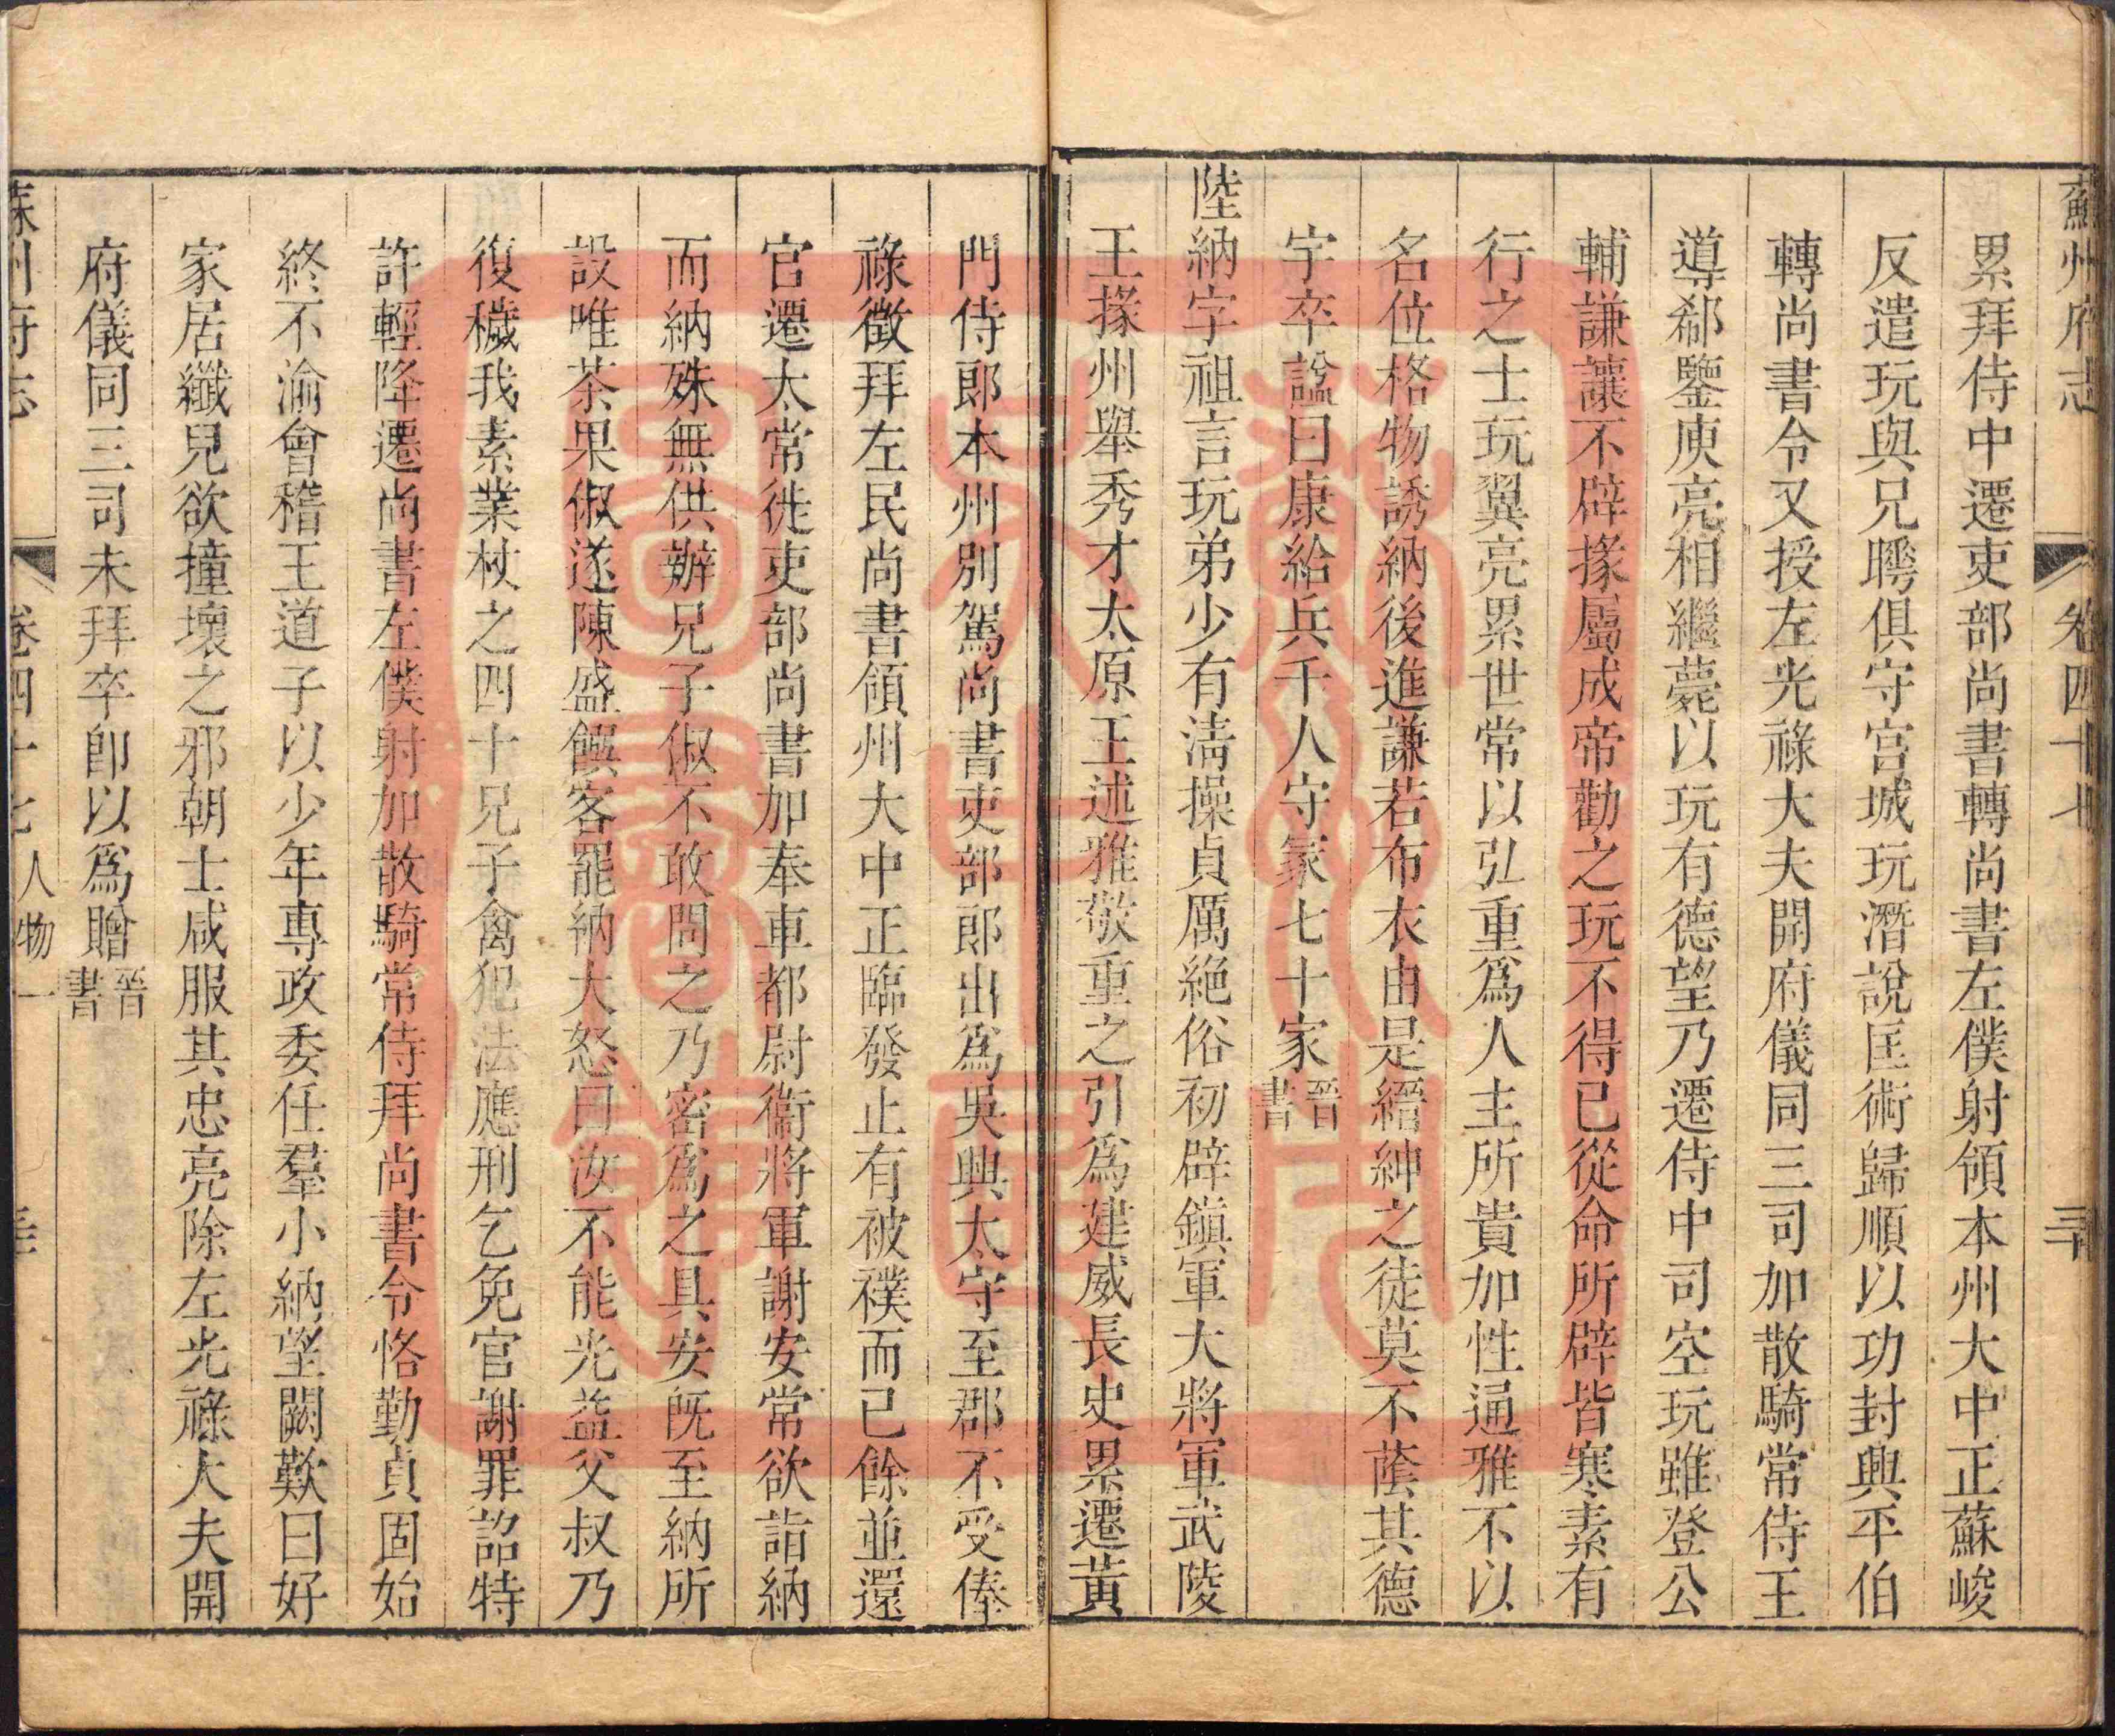 蘇州府志 卷四十七
累拜侍中遷吏部尚書轉尚書左僕射領本州大中正蘇峻
反遣玩與兄曄俱守宮城玩潛說匡術歸順以功封興平伯
轉尚書令又授左光祿大夫開府儀同三司加散騎常侍王
導郗鑒庾亮相繼薨以玩有德望乃遷侍中司空玩雖登公
輔謙讓不辟掾屬成帝勸之玩不得已從命所辟皆寒素有
行之士玩翼亮累世常以弘重爲人主所貴加性通雅不以
名位格物誘納後進謙若布衣由是縉紳之徒莫不蔭其德
宇卒諡曰康給兵千人守冢七十家晉書
陸納字祖言玩弟少有淸操貞厲絶俗初辟鎭軍大將軍武陵
王掾州舉秀才太原王述雅敬重之引爲建威長史累遷黃
門侍郎本州別駕尚書吏部郎出爲吳興太守至郡不受俸
祿徵拜左民尚書領州大中正臨發止有被襆而已餘並還
官遷太常徙吏部尚書加奉車都尉衞將軍謝安常欲詣納
而納殊無供辦兄子俶不敢問之乃密爲之具安旣至納所
設唯茶果俶遂陳盛饌客罷納大怒曰汝不能光益父叔乃
復穢我素業杖之四十兄子禽犯法應刑乞免官謝罪詔特
許輕降遷尚書左僕射加散騎常侍拜尚書令恪勤貞固始
終不渝會稽王道子以少年專政委任羣小納望闕歎曰好
家居纖兒欲撞壞之邪朝士咸服其忠亮除左光祿大夫開
府儀同三司未拜卒卽以爲贈晉書
蘇州府志 卷四十七 人物一